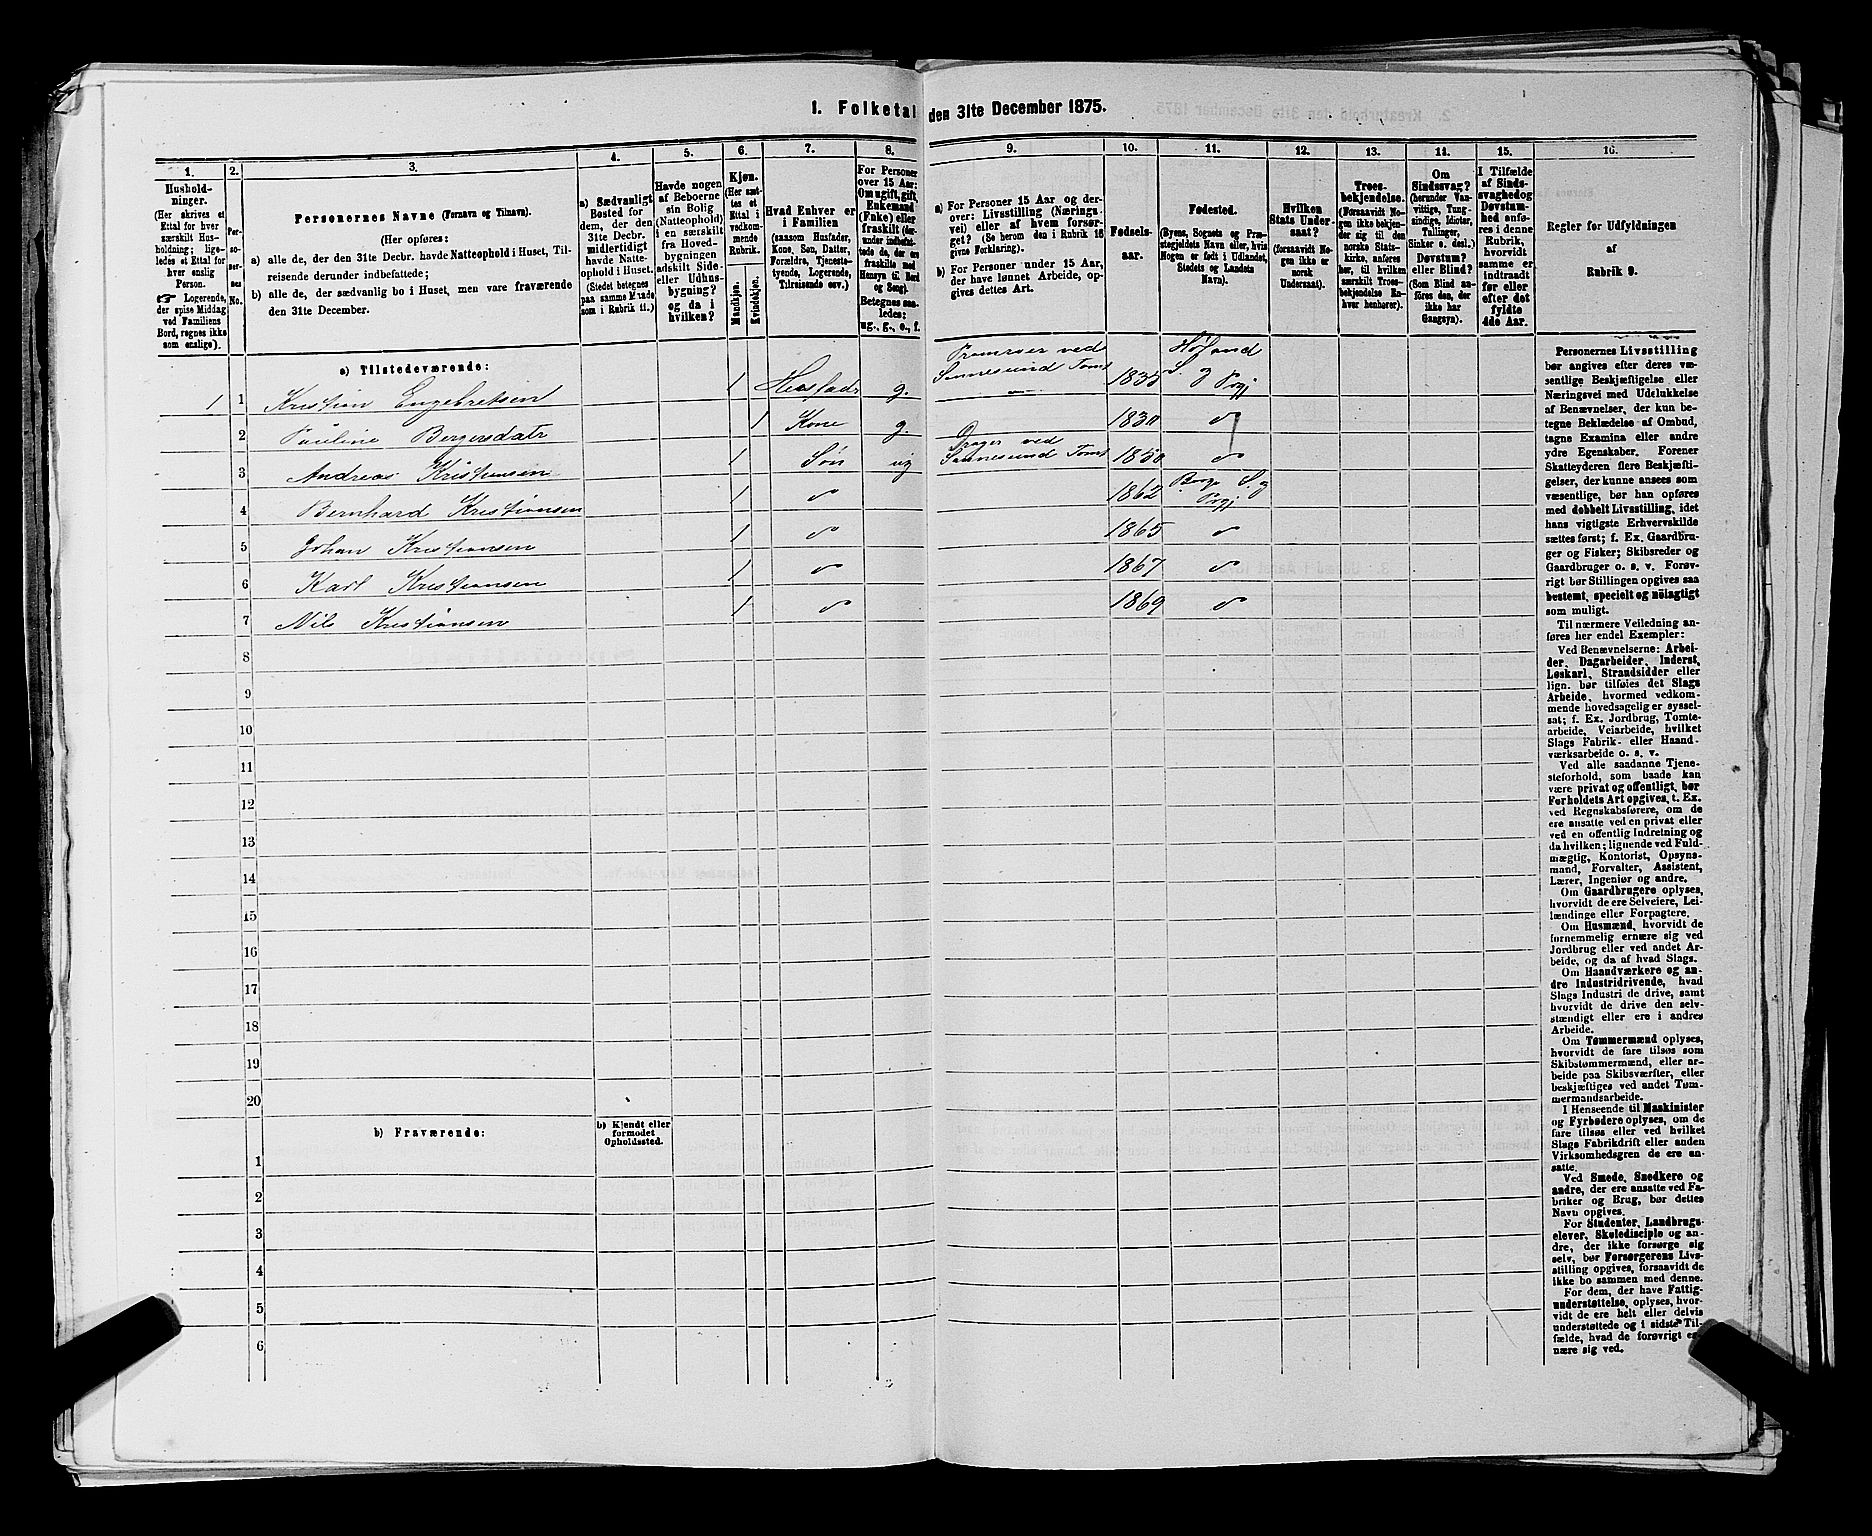 1. Folketal den 31te December 1875.
1.
2.
3.
4.
5.
6.
7.
8.
9.
10.
11.
12.
13.
14.
15.
16.
Hushold-
ninger.
(Her skrives et
Ettal for hver
særskilt Hus-
holdning; lige-
ledes et Ettal for
hver enslig
Person.
☞ Logerende,
der spise Middag
ved Familiens
Bord, regnes ikke
som enslige).
Per-
so-
ner-
nes
No.
Personernes Navne (Fornavn og Tilnavn).
(Her opføres:
a) alle de, der den 31te Decbr. havde Natteophold i Huset, Til-
reisende derunder indbefattede;
b) alle de, der sædvanlig bo i Huset, men vare fraværende
den 31te December.
a) Sædvanligt
Bosted for
dem, der den
31te Decbr.
midlertidigt
havde Natte-
ophold i Huset.
(Stedet betegnes
paa samme Maade
som i Rubrik 11.)
Havde nogen
af Beboerne
sin Bolig
(Natteophold)
i en særskilt
fra Hoved-
bygningen
adskilt Side-
eller Udhus-
bygning?
og da i
hvilken?
Kjøn.
(Her sæt-
tes et
Ettal i
vedkom-
mende
Rubrik.
Mandkjøn.
Kvindekjøn.
Hvad Enhver er
i Familien
(saasom Husfader,
Kone, Søn, Datter,
Forældre, Tjeneste-
tyende, Logerende,
Tilreisende osv.)
For Personer
over 15 Aar:
Om ugift, gift,
Enkemand
(Enke) eller
fraskilt (der-
under indbefat-
tede de, der ere
fraskilte med
Hensyn til Bord
og Seng).
Betegnes saa-
ledes:
ug., g., e., f.
a) For Personer 15 Aar og der-
over: Livsstilling (Nærings-
vei) eller af hvem forsør-
get? (Se herom den i Rubrik 16
givne Forklaring).
b) For Personer under 15 Aar,
der have lønnet Arbeide, op-
gives dettes Art.
Fødsels-
aar.
Fødested.
(Byens, Sognets og Præ-
stegjeldets Navn eller, hvis
Nogen er født i Udlandet,
Stedets og Landets
Navn).
Hvilken
Stats Under-
saat?
(forsaavidt No-
gen ikke er
norsk
Undersaat).
Troes-
bekjendelse.
(Forsaavidt No-
gen ikke bekjen-
der sig til den
norske Stats-
kirke, anføres
her, til hvilken
særskilt Troes-
bekjendelse En-
hver henhører).
Om
Sindssvag?
(herunder Van-
vittige, Tung-
sindige, Idioter,
Tullinger,
Sinker o. desl.)
Døvstum?
eller Blind?
(Som Blind an-
føres den, der
ikke har
Gangsyn).
I Tilfælde
af Sinds-
svaghed og
Døvstum-
hed anfø-
res i denne
Rubrik,
hvorvidt
samme er
indtraadt
før eller
efter det
fyldte
4de Aar.
Regler for Udfyldningen
af
Rubrik 9.
a) Tilstedeværende:
1 1 Kristian Engebretsen 1 Husfader g. Pramroer ved Sannesund Tomt 1835 Høland S og Prgj
2 Pauline Bergersdatr 1 Kone g. 1830 do
3 Andreas Kristiansen 1 Søn ug Drager ved Sannesund Tomt 1850 do
4 Bernhard Kristiansen 1 do 1862 Borge S. og Prgj
5 Johan Kristiansen 1 do 1865 do
6 Karl Kristiansen 1 do 1867 do
7 Nils Kristiansen 1 do 1869 do
8
9
10
11
12
13
14
15
16
17
18
19
20
b) Fraværende:
b) Kjendt eller
formodet
Opholdssted.
1
2
3
4
5
6
Personernes Livsstilling
bør angives efter deres væ-
sentlige Beskjæftigelse eller
Næringsvei med Udelukkelse
af Benævnelser, der kun be-
tegne Beklædelse af Ombud,
tagne Examina eller andre
ydre Egenskaber. Forener
Skatteyderen flere Beskjæfti-
gelser, der kunne ansees som
væsentlige, bør han opføres
med dobbelt Livsstilling, idet
hans vigtigste Erhvervskilde
sættes først; f. Ex. Gaardbru-
ger og Fisker; Skibsreder og
Gaardbruger o. s. v. Forøv-
rigt bør Stillingen opgives saa
bestemt, specielt og nöiagtigt
som muligt.
Til nærmere Veiledning an-
føres her endel Exempler:
Ved Benævnelserne: Arbei-
der, Dagarbeider, Inderst,
Løskarl, Strandsidder eller
lign. bør tilføies det Slags
Arbeide, hvormed vedkom-
mende hovedsagelig er syssel-
sat; f. Ex. Jordbrug, Tomte-
arbeide, Veiarbeide, hvilket
Slags Fabrik- eller Haand-
værksarbeide o. s. v.
Ved alle saadanne Tjene-
steforhold, som baade kan
være privat og offentligt, bør
Forholdets Art opgives, t. Ex.
ved Regnskabsførere, om de
ere ansatte ved en privat eller
ved en offentlig Indretning og
da hvilken; lignende ved Fuld-
mægtig, Kontorist, Opsyns-
mand, Forvalter, Assistent,
Lærer, Ingeniør og andre.
Om Gaardbrugere oplyses,
hvorvidt de ere Selveiere, Lei-
lændinge eller Forpagtere.
Om Husmænd, hvorvidt de
fornemmelig ernære sig ved
Jordbrug eller ved andet Ar-
beide, og da af hvad Slags.
Om Haandværkere og an-
dre Industridrivende, hvad
Slags Industri de drive, samt
hvorvidt de drive den selv-
stændigt eller ere i andres
Arbeide.
Om Tømmermænd oplyses,
hvorvidt de fare tilsøs som
Skibstømmermænd, eller ar-
beide paa Skibsværfter, eller
beskjæftiges ved andet Tøm-
mermandsarbeide.
I Henseende til Maskinister
og Fyrbødere oplyses, om de
fare tilsøs eller ved hvilket
Slags Fabrikdrift eller anden
Virksomhedsgren de ere an-
satte.
Ved Smede, Snedkere og
andre, der ere ansatte ved Fa-
briker og Brug, bør dettes
Navn opgives.
For Studenter, Landbrugs-
elever, Skoledisciple og an-
dre, der ikke forsørge sig
selv, bør Forsørgerens Livs-
stilling opgives, forsaavidt de
ikke bo sammen med denne.
For dem, der have Fattig-
understøttelse, oplyses, hvor-
vidt de ere helt eller delvis
understøttede og i sidste Til-
fælde, hvad de forøvrigt er-
nære sig ved.